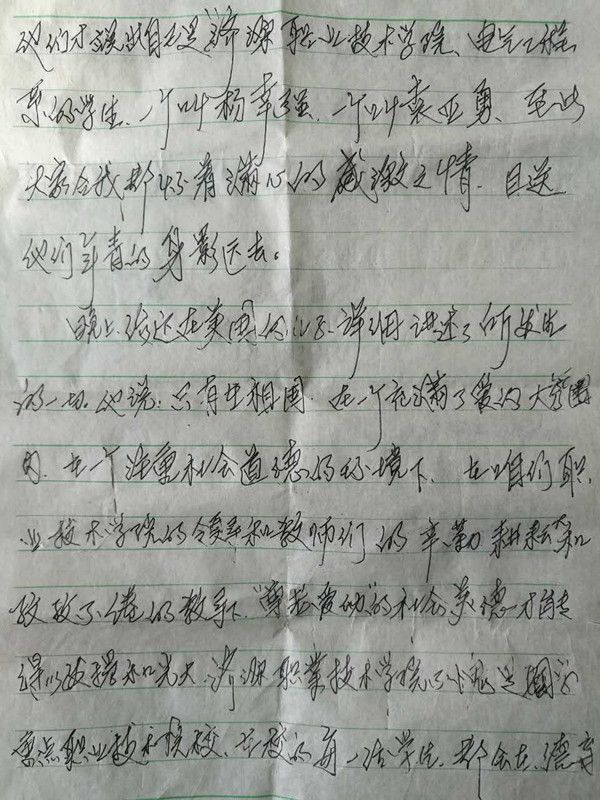 他们才说出自己是济源职业技术学院、电气工程
系的学生、一个叫杨幸强、一个叫袁亚勇、至此
大家全我都怀着满心的感激之情、目送
他们年青的身影远去。
晚上、给还在美国的儿子、详细讲述了所发生
的一切、他说：只有在祖国、在一个充满了爱的大氛围
内、在一个注重社会道德的环境下、在咱们职
业技术学院的领导和教师们的辛勤耕耘和
孜孜不倦的教导下、"尊老爱幼"的社会美德才能
得以发扬和光大、济源职业技术学院不愧是国家
重点职业技术院校、在校的每一活学生、都会在、德育